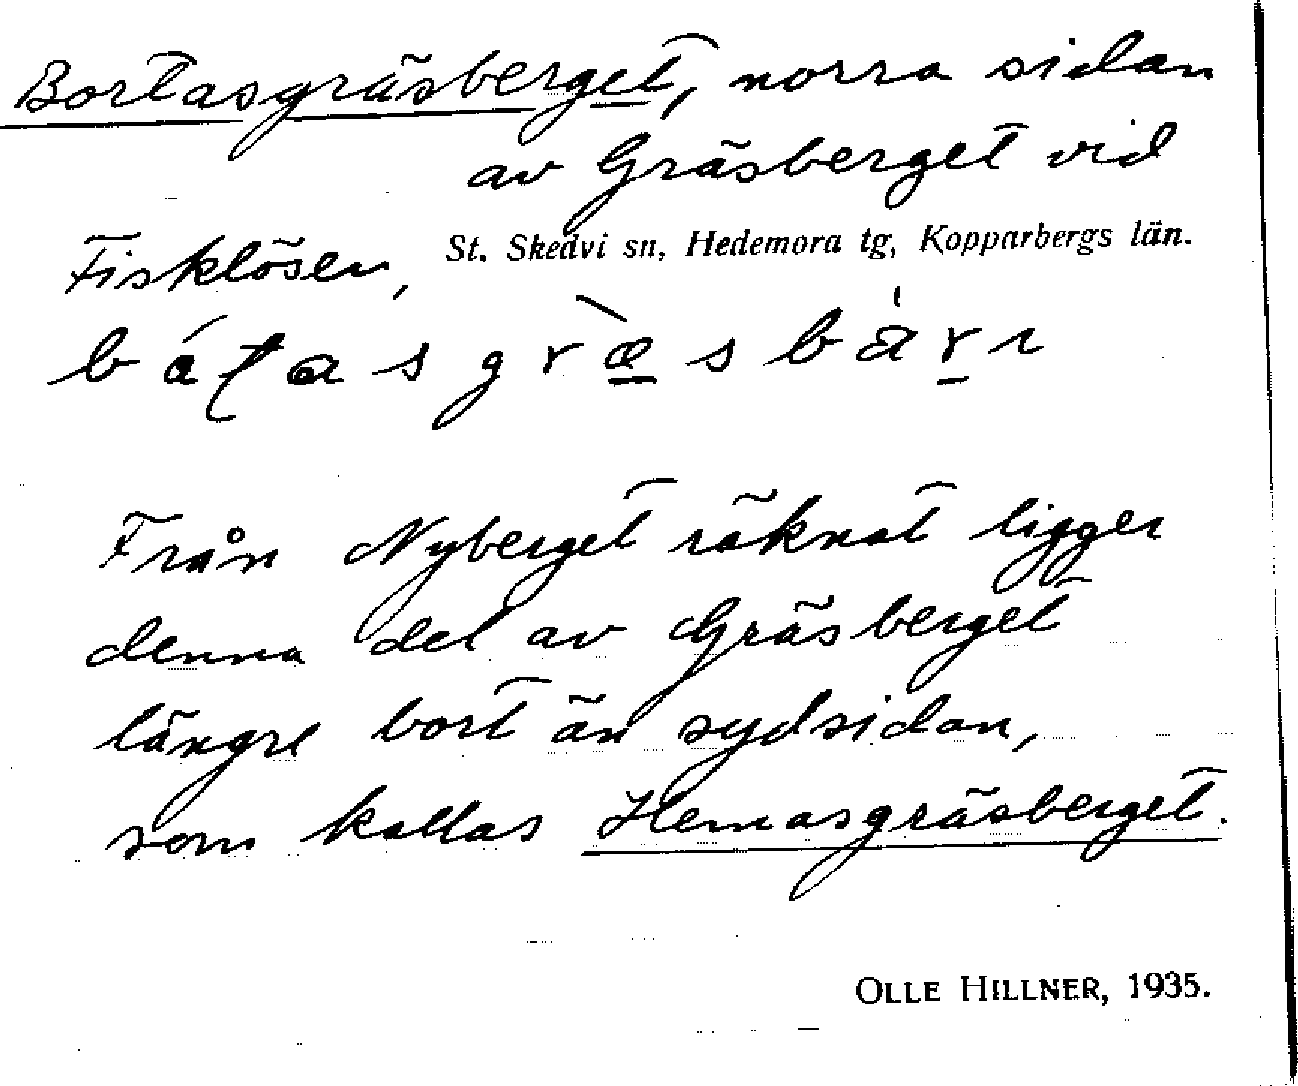 Bortasgräsberget, norra sidan
av Gräsberget vid
Fisklösen,
St. Skedvi sn, Hedemora tg, Kopparbergs län.
Från Nyberget räknat ligger
denna del av Gräsberget
längre bort än sydsidan,
som kallas Hemasgräsberget.
OLLE HILLNER, 1935.